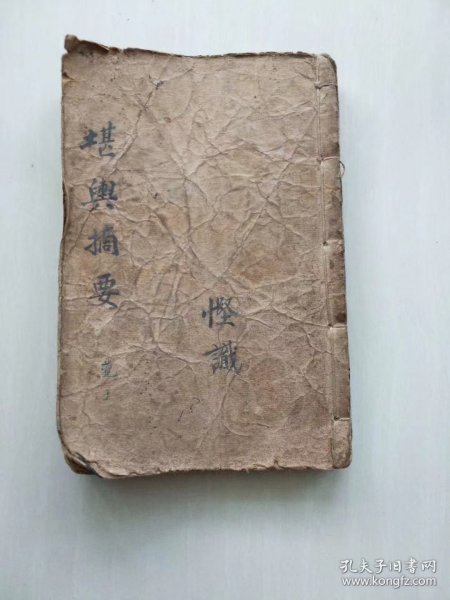 堪輿摘要
慳識
孔夫子旧书网
www.kongfz.com